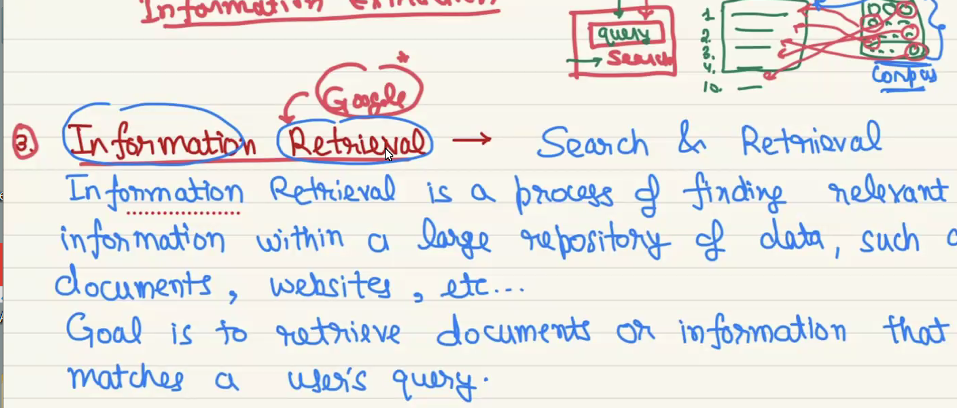 Information Extraction
query
Search
1.
2.
3.
4.
10.
Corpus
Google *
3. Information Retrieval → Search & Retrieval
Information Retrieval is a process of finding relevant
information within a large repository of data, such
documents, websites, etc...
Goal is to retrieve documents or information that
matches a user's query.